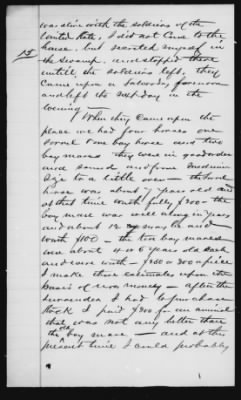 was alive with the soldiers of the
United States, I did not come to the
house, but secreted myself in
15 the swamp, and stopped there
untill the soldiers left, they
Came upon a Saturday forenoon
and left the next day in the
evening —
When they came upon the
place we had four horses one
sorrel one bay horse and two
bay mares they were in good order
and sound and from medium
size to a little over — the sorrel
horse was about 7 years old and
at that time worth fully $300 — the
bay mare was well along in years
and about 12 years old and
worth $100 — the two bay mares
were about 4 or 6 years old each
and were worth — $250 or 300 a piece
I make these estimates upon the
basis of now money — after the
surrender I had to purchase
stock I paid $200 for an animal
that was not any better than
the old bay mare — and at the
present time I could probably